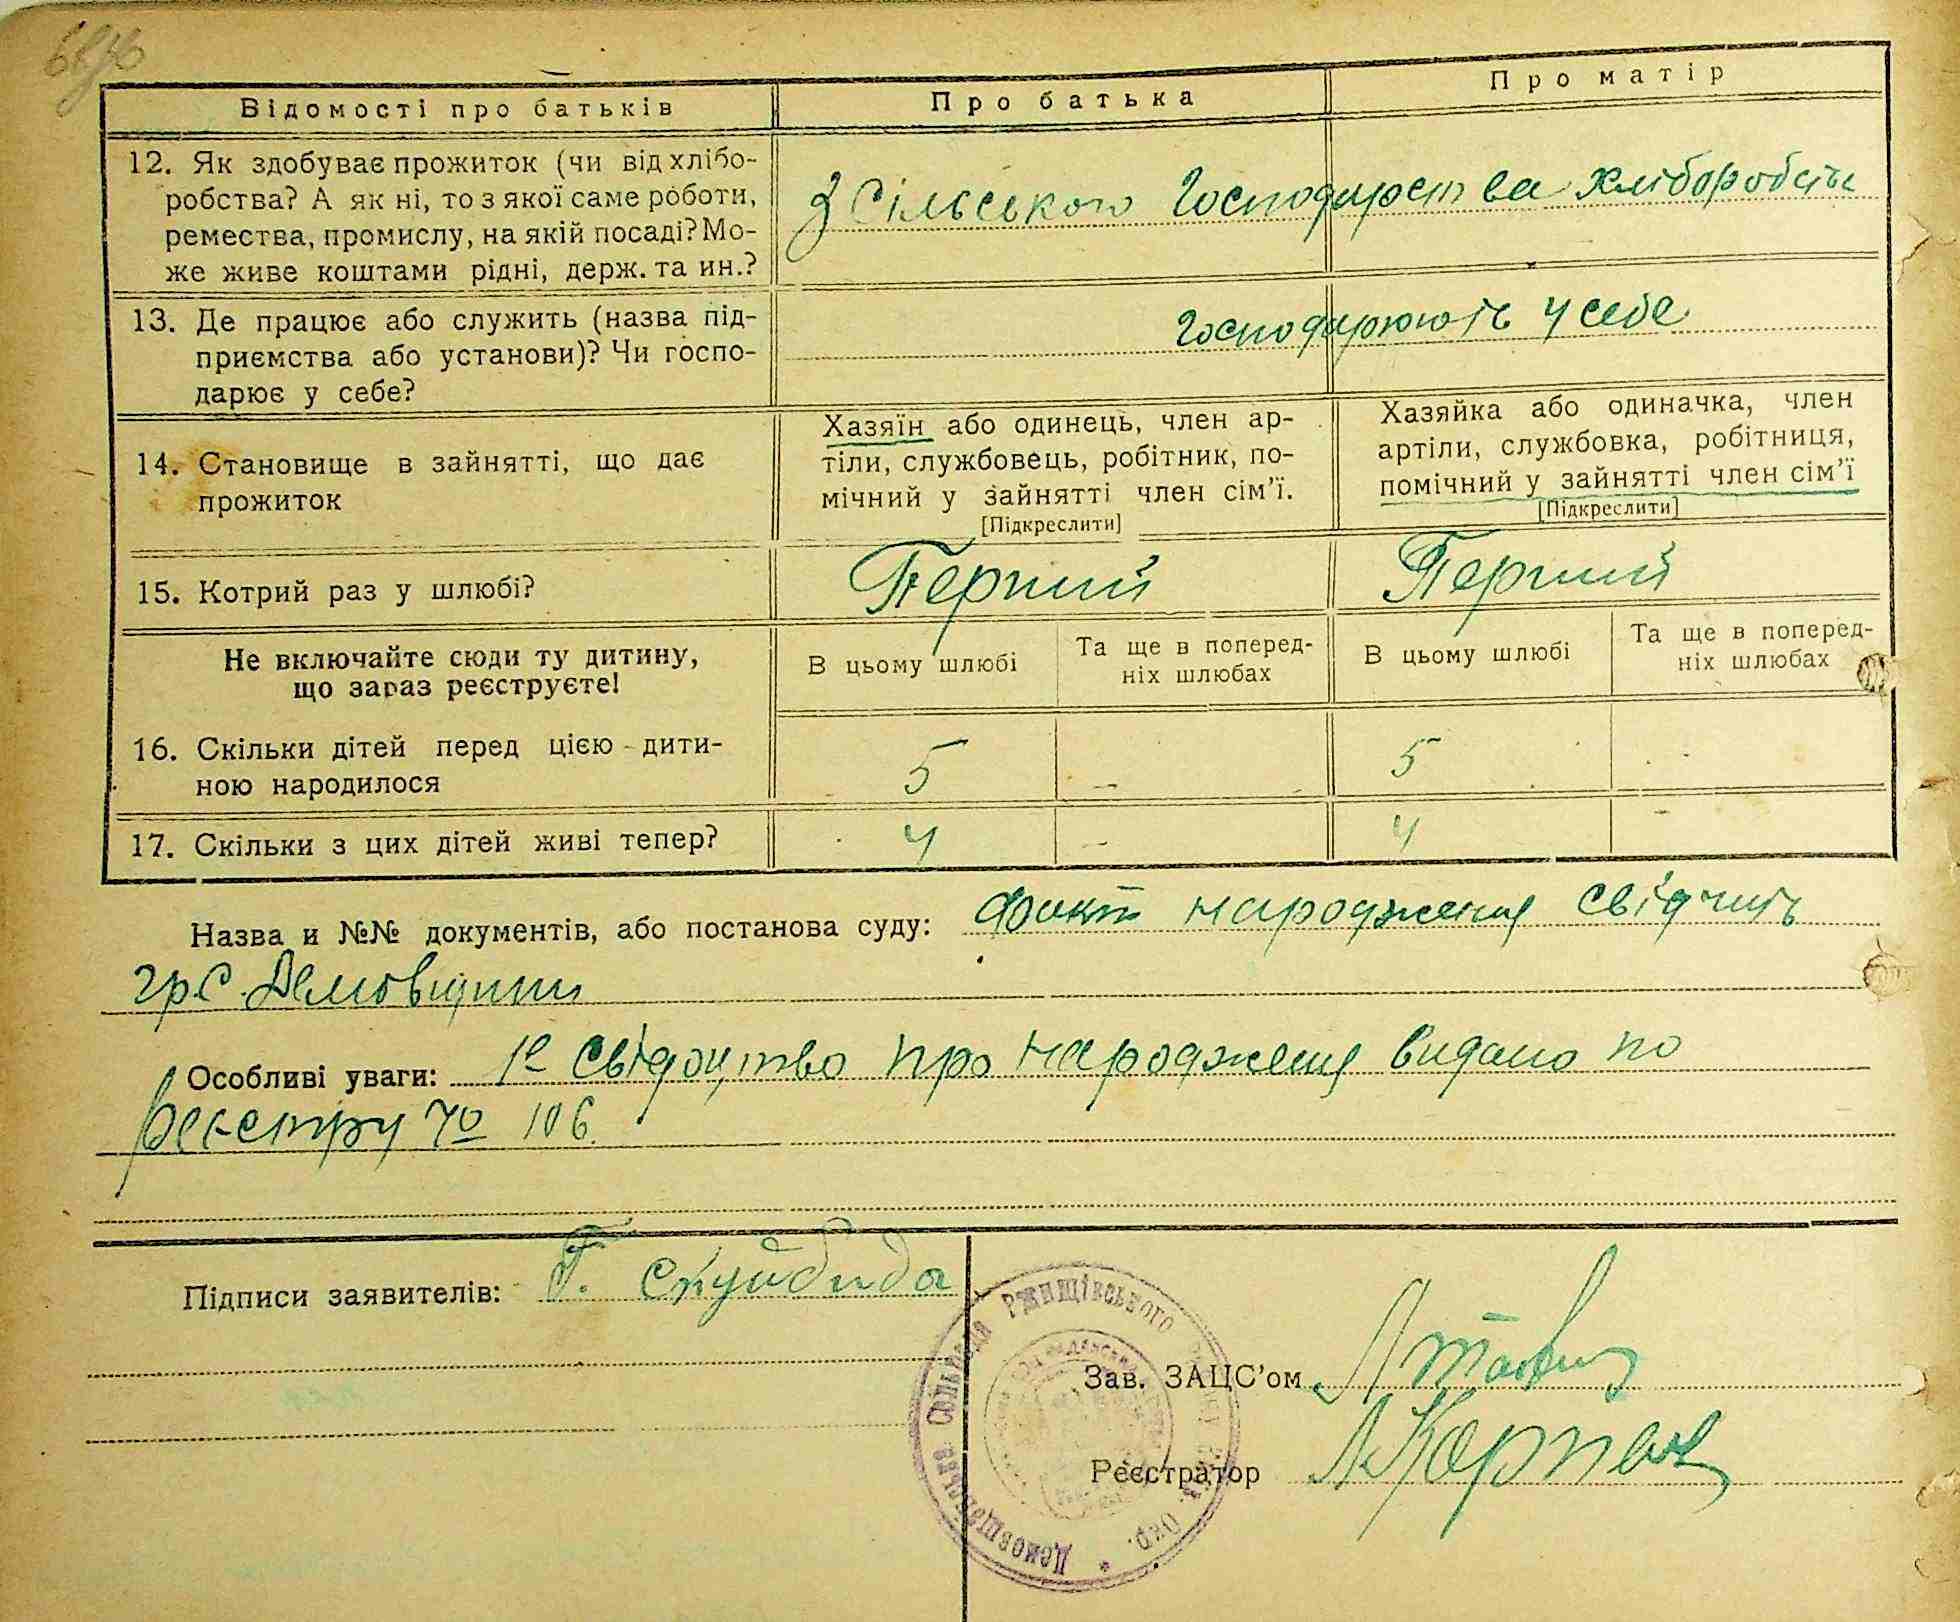 Відомості про батьків
Про батька
Про матір
12. Як здобуває прожиток (чи від хлібо-
робства? А як ні, то з якої саме роботи,
ремества, промислу, на якій посаді? Мо-
же живе коштами рідні, держ. та ин.?
З Сільського Господарства хліборобсть
13. Де працює або служить (назва під-
приємства або установи)? Чи госпо-
дарює у себе?
Господарюють у себе
14. Становище в зайнятті, що дає
прожиток
Хазяїн або одинець, член ар-
тіли, службовець, робітник, по-
мічний у зайнятті член сім'ї.
[Підкреслити]
Хазяйка або одиначка, член
артіли, службовка, робітниця,
помічний у зайнятті член сім'ї
[Підкреслити]
15. Котрий раз у шлюбі?
Перший
Перший
Не включайте сюди ту дитину,
що зараз реєструєте!
В цьому шлюбі
Та ще в поперед-
ніх шлюбах
В цьому шлюбі
Та ще в поперед-
ніх шлюбах
16. Скільки дітей перед цією дити-
ною народилося
5
-
5
-
17. Скільки з цих дітей живі тепер?
4
-
4
-
Назва и №№ документів, або постанова суду: Факт народження свідчить
гр. С. Демовщини
Особливі уваги: 1е свідоцтво про народженя видано по
реєстру № 106.
Підписи заявителів: Г. Скуйбида
Зав. ЗАЦС'ом
Реєстратор
Демовщанська Сільрада Ржищівського Окр.